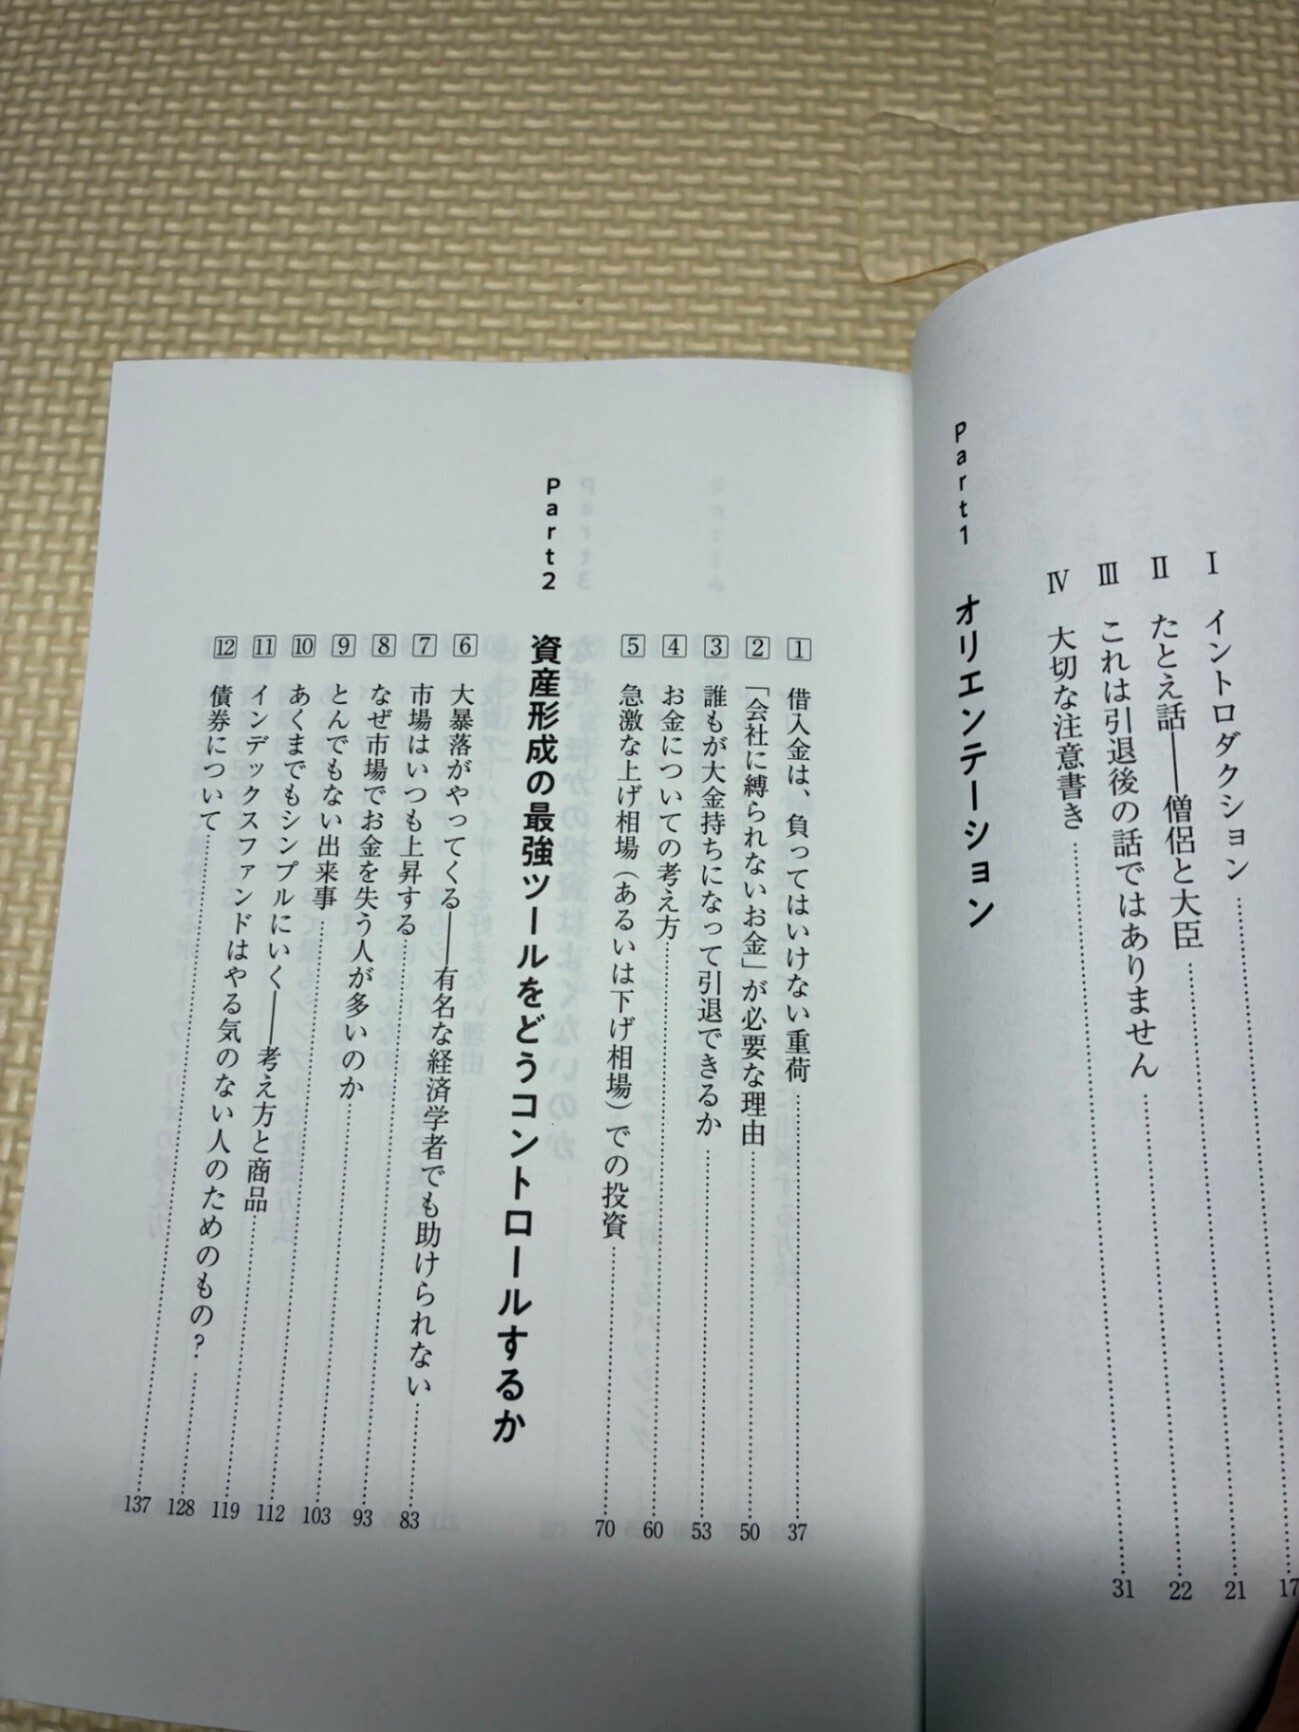 Ⅰ イントロダクション 17
Ⅱ たとえ話――僧侶と大臣 21
Ⅲ これは引退後の話ではありません 22
Ⅳ 大切な注意書き 31
Part1 オリエンテーション
1 借入金は、負ってはいけない重荷 37
2 「会社に縛られないお金」が必要な理由 50
3 誰もが大金持ちになって引退できるか 53
4 お金についての考え方 60
5 急激な上げ相場（あるいは下げ相場）での投資 70
Part2 資産形成の最強ツールをどうコントロールするか
6 大暴落がやってくる――有名な経済学者でも助けられない 83
7 市場はいつも上昇する 93
8 なぜ市場でお金を失う人が多いのか 103
9 とんでもない出来事 112
10 あくまでもシンプルにいく――考え方と商品 119
11 インデックスファンドはやる気のない人のためのもの？ 128
12 債券について 137